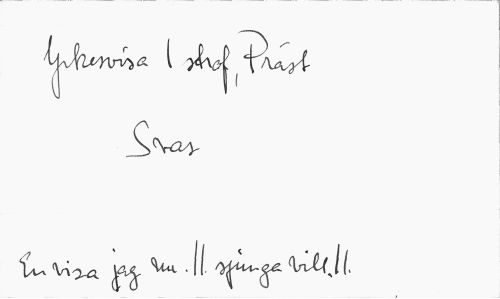 Yrkesvisa 1 strof, Präst
Svar
En visa jag nu .||. sjunga vill.||.